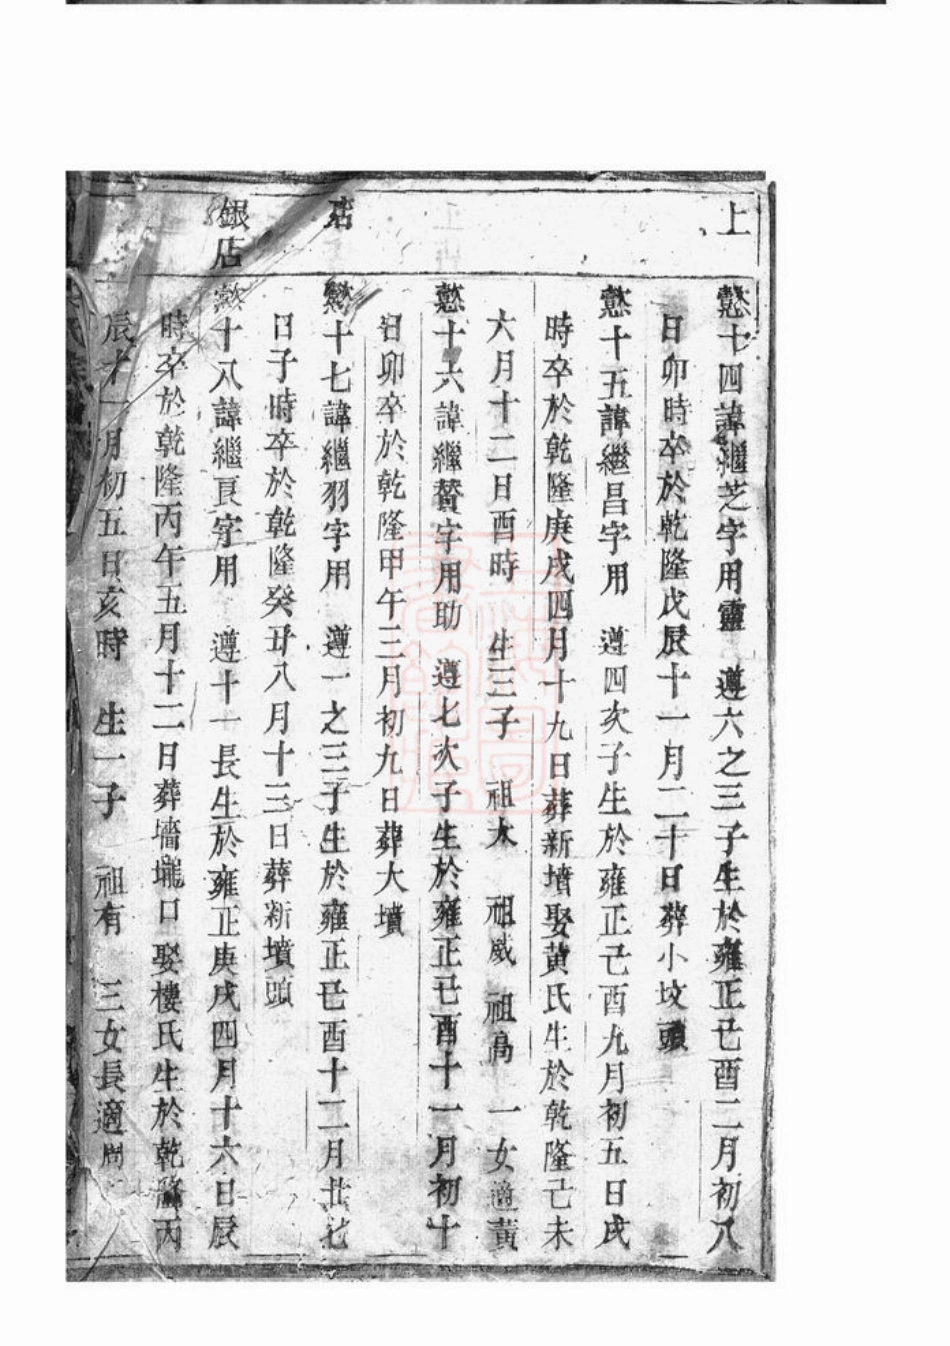 上
懿十四諱繼芝字用靈　遵六之三子生於雍正己酉二月初八
日卯時卒於乾隆戊辰十一月二十日葬小坟頭
懿十五諱繼昌字用　遵四次子生於雍正己酉九月初五日戌
時卒於乾隆庚戌四月十九日葬新墳娶黃氏生於乾隆己未
六月十二日酉時　生三子　祖大　祖威　祖高　一女適黃
懿十六諱繼贊字用助　遵七次子生於雍正己酉十一月初十
日卯卒於乾隆甲午三月初九日葬大墳
店
懿十七諱繼羽字用　遵一之三子生於雍正己酉十二月廿七
日子時卒於乾隆癸丑八月十三日葬新墳頭
銀店
懿十八諱繼頁字用　遵十一長生於雍正庚戌四月十六日辰
時卒於乾隆丙午五月十二日葬墻壠口娶樓氏生於乾隆丙
辰十一月初五日亥時　生一子　祖有　三女長適